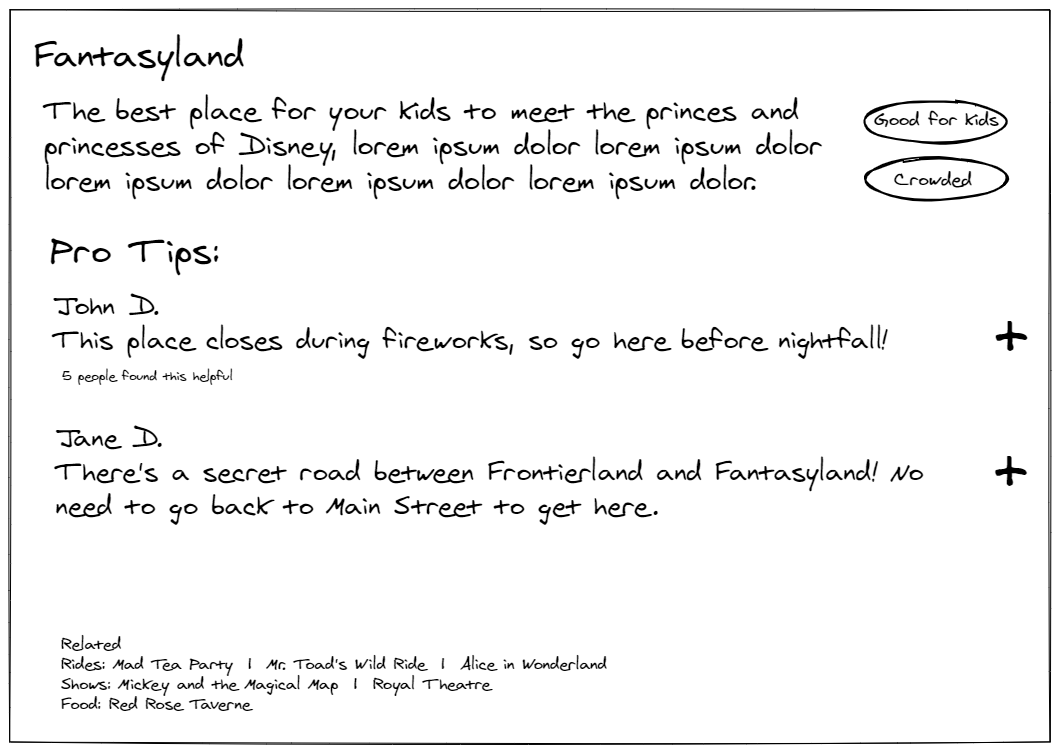 Fantasyland
The best place for your kids to meet the princes and
princesses of Disney, lorem ipsum dolor lorem ipsum dolor
lorem ipsum dolor lorem ipsum dolor lorem ipsum dolor.
Good for kids
Crowded
Pro Tips:
John D.
This place closes during fireworks, so go here before nightfall!
+
5 people found this helpful
Jane D.
There's a secret road between Frontierland and Fantasyland! No
need to go back to Main Street to get here.
+
Related
Rides: Mad Tea Party | Mr. Toad's Wild Ride | Alice in Wonderland
Shows: Mickey and the Magical Map | Royal Theatre
Food: Red Rose Taverne